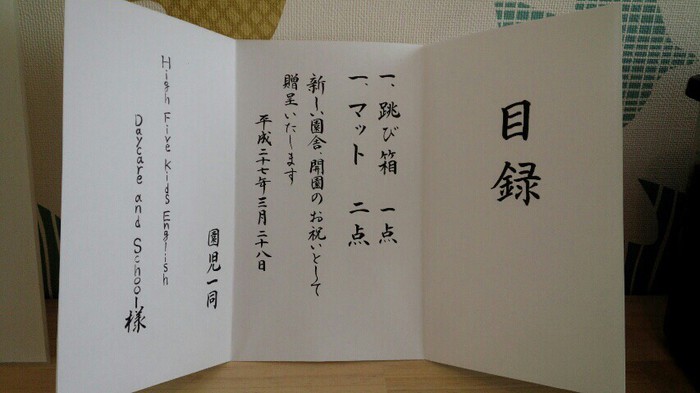 目録
一、跳び箱 一点
一、マット 二点
新しい園舎、開園のお祝いとして
贈呈いたします
平成二十七年三月二十八日
園児一同
High Five Kids English
Daycare and School様